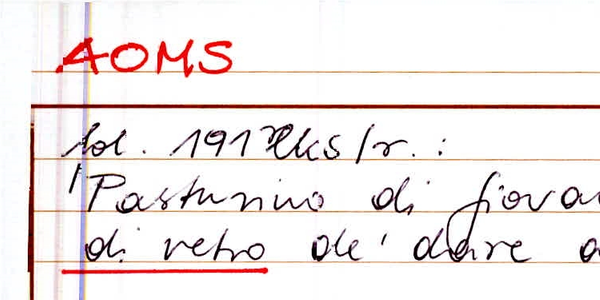 AOMS
fol. 191 lks/r.:
'Pasturino di giova
di vetro de' dare a